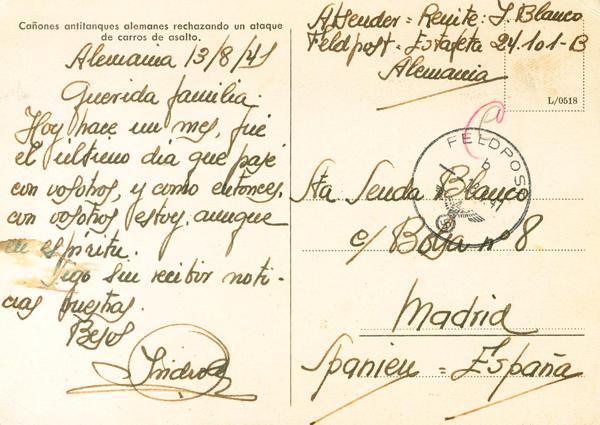 Cañones antitanques alemanes rechazando un ataque
de carros de asalto.
Alemania 13/8/41
Querida familia.
Hoy hace un mes, fué
el último dia que pasé
con vosotros, y como entonces,
con vosotros estoy, aunque
en espíritu.
Sigo sin recibir noti-
cias vuestras.
Besos
Isidro
Absender = Remite: I. Blanco
Feldpost = Estafeta 24.101-B
Alemania
L/0518
FELDPOST
b
41
Sta Senda Blanco
c/ Bolsa nº 8
Madrid
Spanien = España